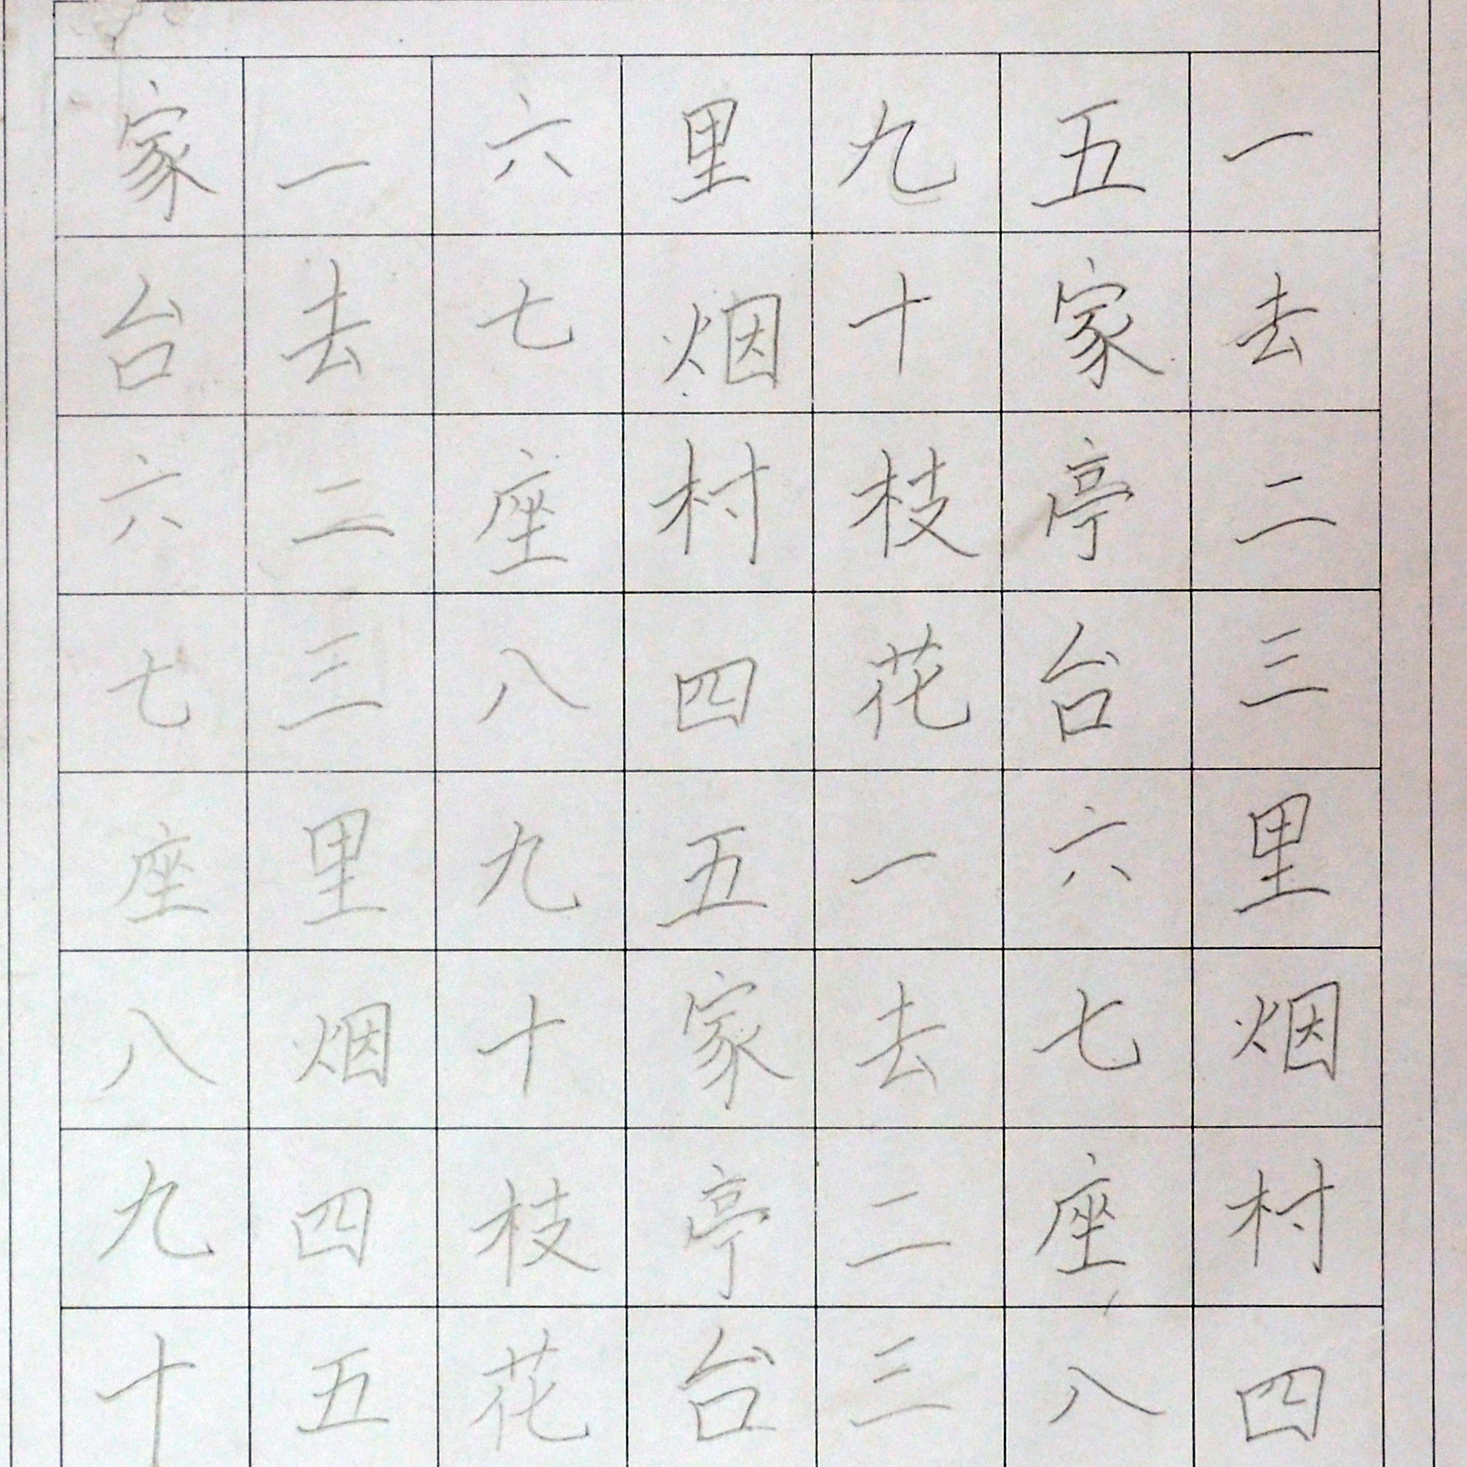 一去二三里烟村四
五家亭台六七座八
九十枝花一去二三
里烟村四五家亭台
六七座八九十枝花
一去二三里烟四五
家台六七座八九十